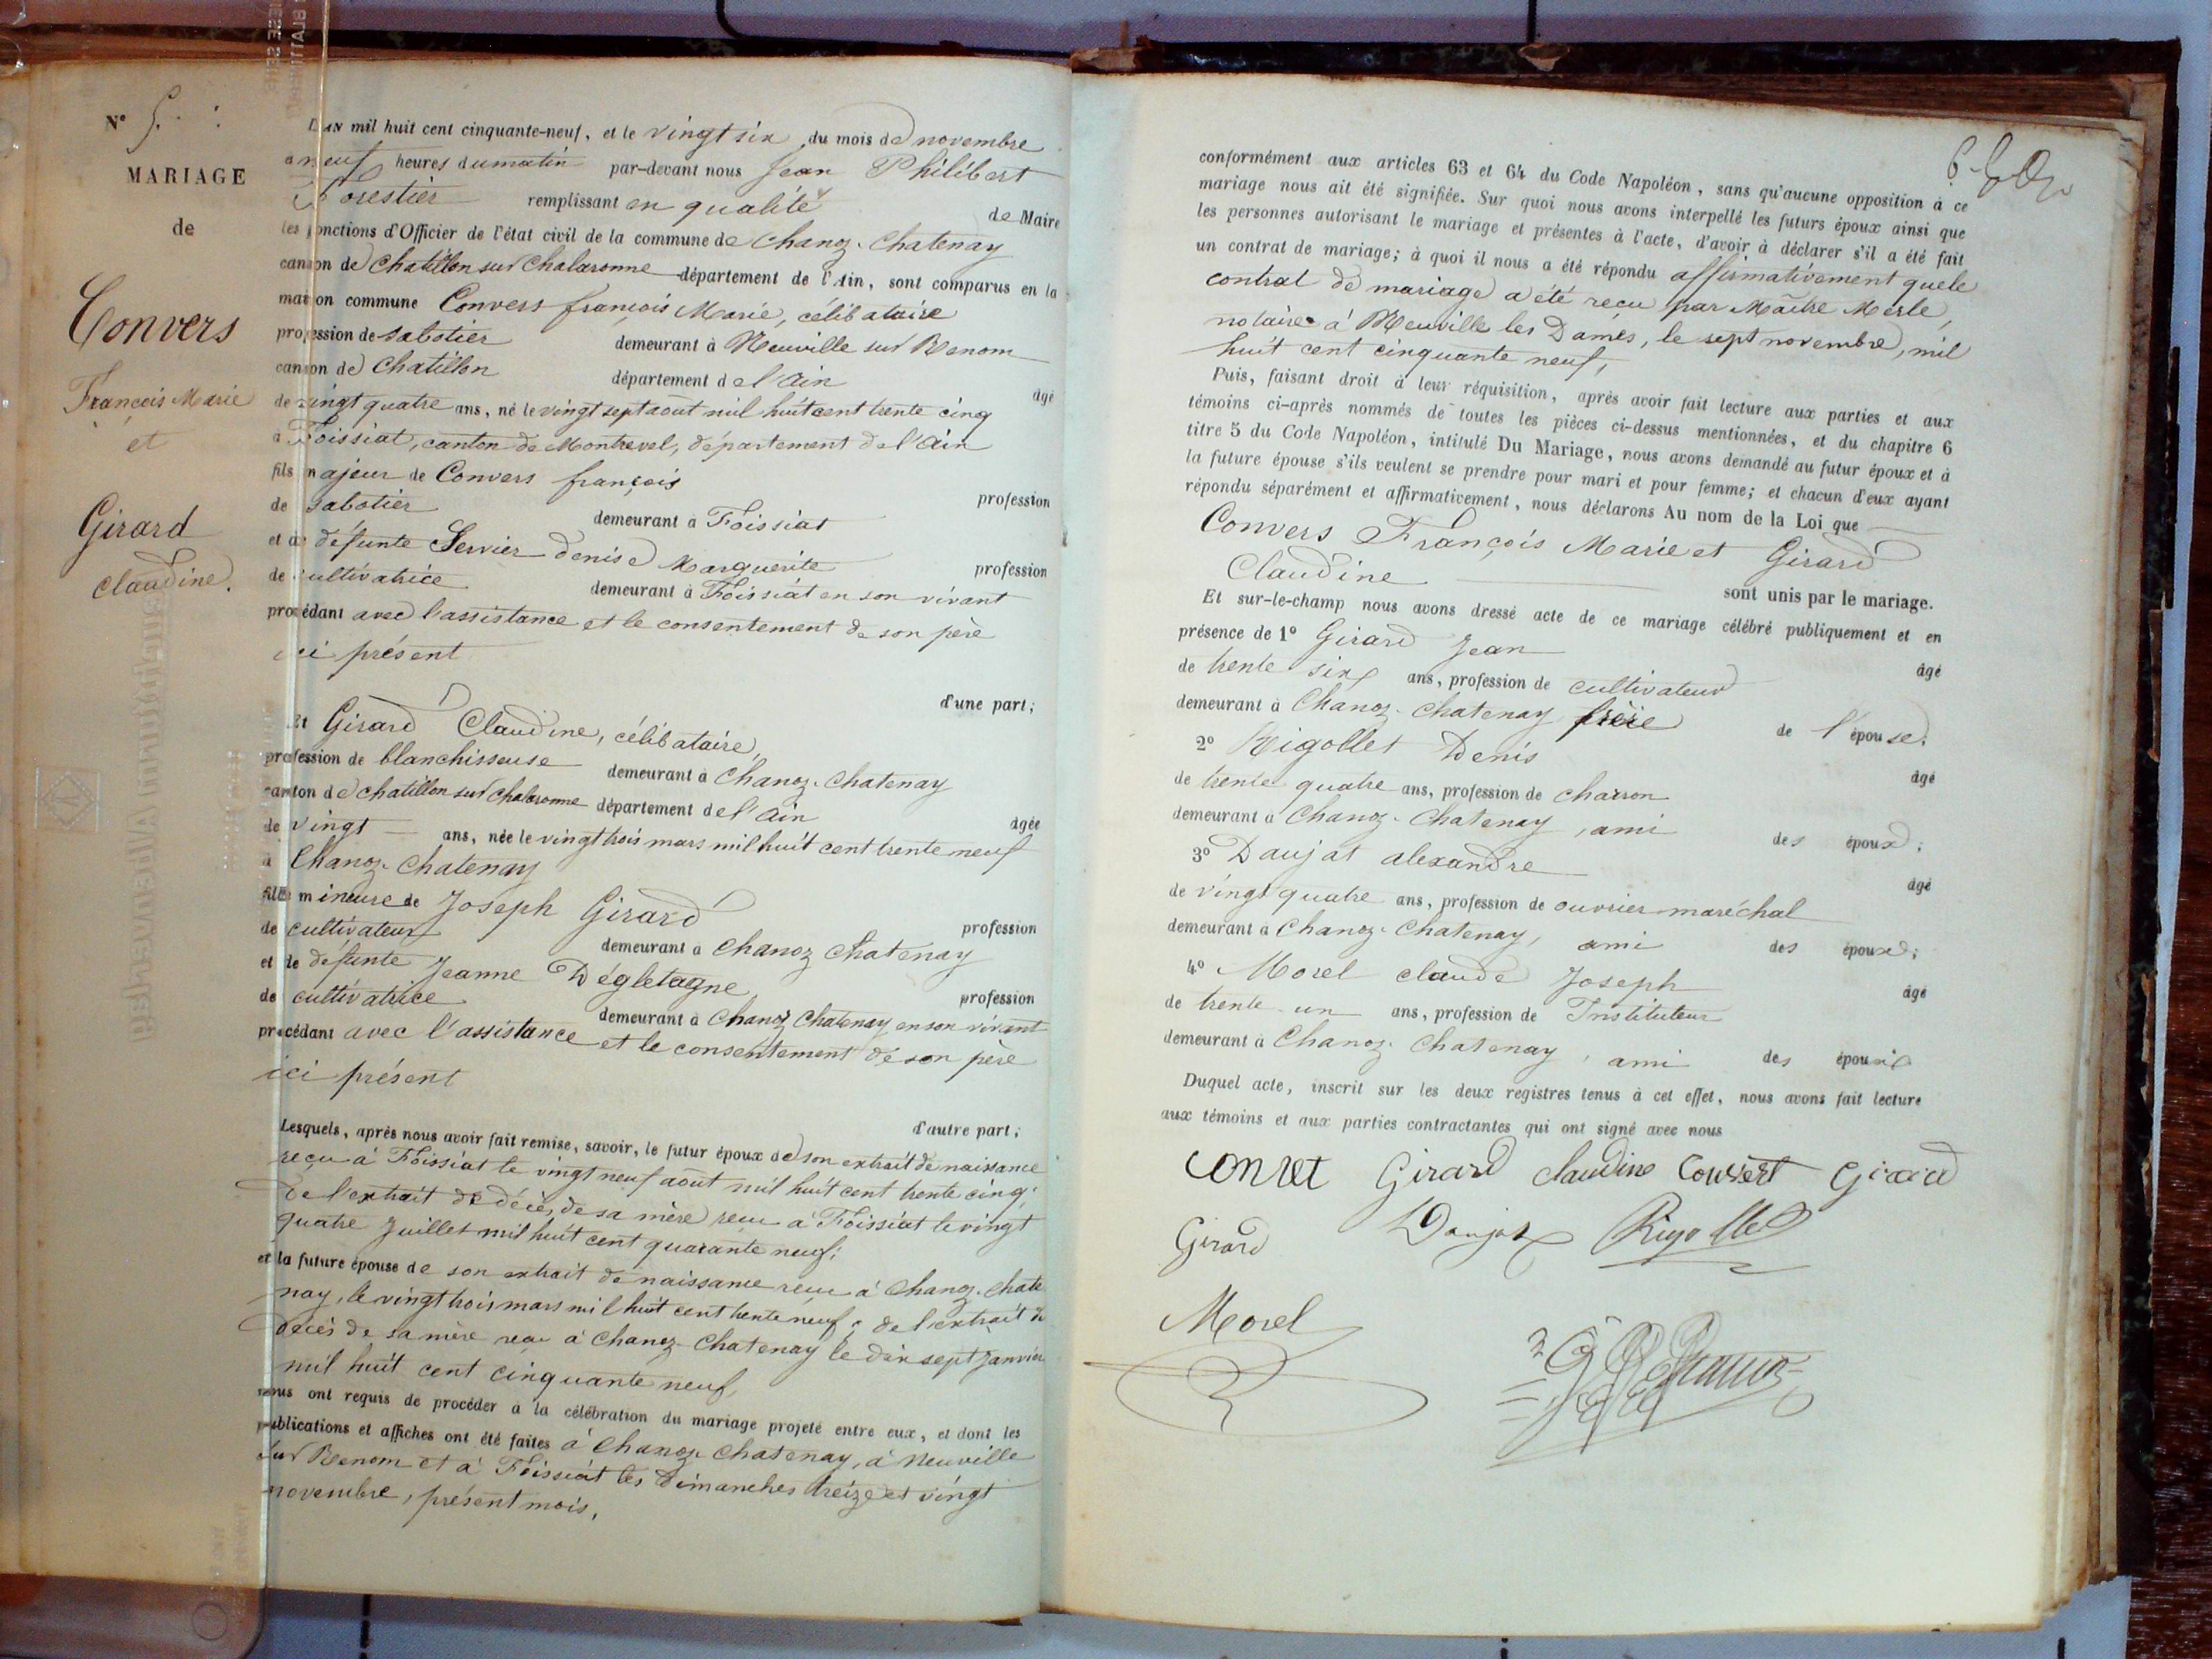 N° 5
MARIAGE
de
Convers
François Marie
et
Girard
Claudine.
L'AN mil huit cent cinquante-neuf, et le vingt six du mois de novembre
a neuf heures du matin par-devant nous Jean Philibert
Forestier remplissant en qualité de Maire
les fonctions d'Officier de l'état civil de la commune de Chanoz-Chatenay
canton de Chatillon sur Chalaronne département de l'Ain, sont comparus en la
maison commune Convers françois Marie, célibataire
profession de sabotier demeurant à Neuville sur Renom
canton de Chatillon département de l'Ain âgé
de vingt quatre ans, né le vingt sept août mil huit cent trente cinq
à Foissiat, canton de Montrevel, département de l'Ain
fils majeur de Convers françois profession
de sabotier demeurant à Foissiat
et de défunte Servier denise Marguerite profession
de cultivatrice demeurant à Foissiat en son vivant
procédant avec l'assistance et le consentement de son père
ici présent
d'une part;
Et Girard Claudine, célibataire,
profession de blanchisseuse demeurant à Chanoz-Chatenay
canton de chatillon sur Chalaronne département de l'Ain
de vingt ans, née le vingt trois mars mil huit cent trente neuf âgée
à Chanoz-Chatenay
fille mineure de Joseph Girard profession
de cultivateur demeurant à Chanoz Chatenay
et de défunte Jeanne Dégletagne profession
de cultivatrice demeurant à Chanoz Chatenay en son vivant
procédant avec l'assistance et le consentement de son père
ici présent
d'autre part;
Lesquels, après nous avoir fait remise, savoir, le futur époux de son extrait de naissance
reçu à Foissiat le vingt neuf août mil huit cent trente cinq;
de l'extrait de décès de sa mère reçu à Foissiat le vingt
quatre Juillet mil huit cent quarante neuf;
et la future épouse de son extrait de naissance reçu à Chanoz-Chate
nay, le vingt trois mars mil huit cent trente neuf; de l'extrait de
décès de sa mère reçu à Chanoz-Chatenay le dix sept Janvier
mil huit cent cinquante neuf,
nous ont requis de procéder à la célébration du mariage projeté entre eux, et dont les
publications et affiches ont été faites à Chanoz-Chatenay, à Neuville
sur Renom et à Foissiat les dimanches treize et vingt
novembre, présent mois.
conformément aux articles 63 et 64 du Code Napoléon, sans qu'aucune opposition à ce
mariage nous ait été signifiée. Sur quoi nous avons interpellé les futurs époux ainsi que
les personnes autorisant le mariage et présentes à l'acte, d'avoir à déclarer s'il a été fait
un contrat de mariage; à quoi il nous a été répondu affirmativement que le
contrat de mariage a été reçu par Maître Merle,
notaire à Neuville les Dames, le sept novembre, mil
huit cent cinquante neuf,
Puis, faisant droit à leur réquisition, après avoir fait lecture aux parties et aux
témoins ci-après nommés de toutes les pièces ci-dessus mentionnées, et du chapitre 6
titre 5 du Code Napoléon, intitulé Du Mariage, nous avons demandé au futur époux et à
la future épouse s'ils veulent se prendre pour mari et pour femme; et chacun d'eux ayant
répondu séparément et affirmativement, nous déclarons Au nom de la Loi que
Convers François Marie et Girard
Claudine sont unis par le mariage.
Et sur-le-champ nous avons dressé acte de ce mariage célébré publiquement et en
présence de 1° Girard Jean âgé
de trente six ans, profession de cultivateur
demeurant à Chanoz-Chatenay frère de l'épouse;
2° Rigollet Denis âgé
de trente quatre ans, profession de charron
demeurant à Chanoz-Chatenay, ami des époux;
3° Daujat alexandre âgé
de vingt quatre ans, profession de ouvrier maréchal
demeurant à Chanoz-Chatenay, ami des époux;
4° Morel claude Joseph âgé
de trente un ans, profession de Instituteur
demeurant à Chanoz-Chatenay, ami des époux
Duquel acte, inscrit sur les deux registres tenus à cet effet, nous avons fait lecture
aux témoins et aux parties contractantes qui ont signé avec nous
Girard claudine Convert Girard
Girard Daujat Rigollet
Morel